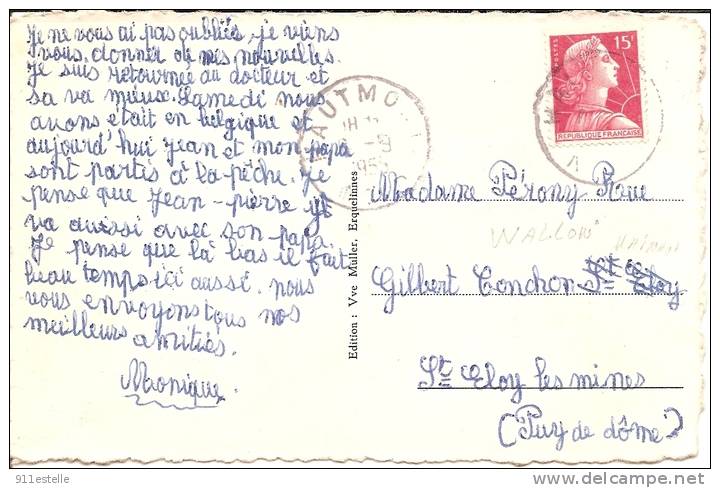 Je ne vous ai pas oubliés, je viens
vous donner de mes nouvelles.
Je suis retournée au docteur et
sa va mieux. Samedi nous
avons était en belgique et
aujourd'hui Jean et mon papa
sont partis à la pêche. Je
pense que Jean-pierre y
va aussi avec son papa.
Je pense que là bas il fait
beau temps ici aussi. nous
vous envoyons tous nos
meilleurs amitiés.
Monique.
Edition : Vve Muller, Erquelinnes
HAUTMO
POSTES
15F
REPUBLIQUE FRANÇAISE
Madame Pérony Rue
WALLON
Gilbert Conchon St Eloy
St Eloy les mines
(Puy de dôme)
911estelle
delcampe.net